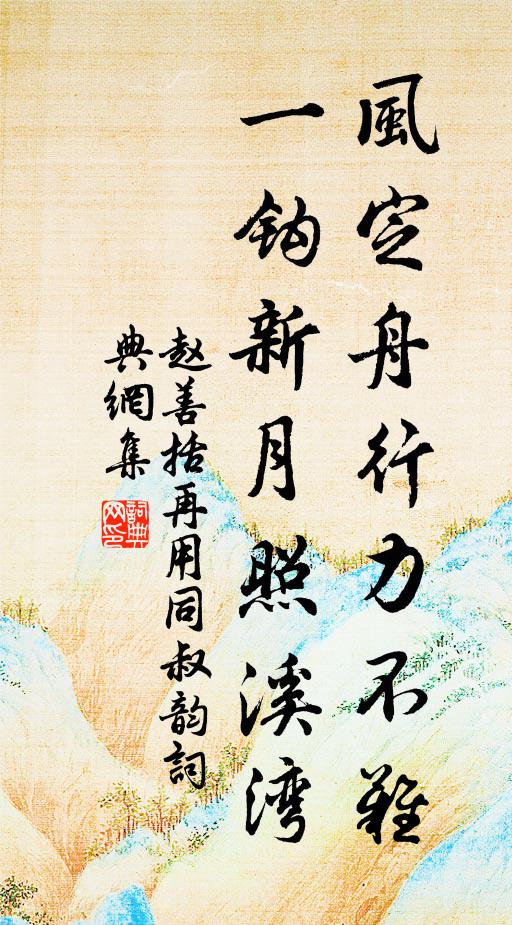 風定舟行力不難
一鈎新月照溪湾
赵善括再用同叔韵詞
典網集
詞典網印